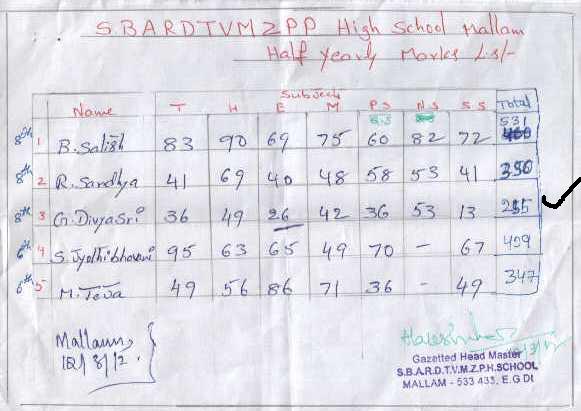 S.B.A.R.D.T.V.M.Z.P.P High School Mallam
Half Yearly Marks List
Subjects
Name T H E M P.S N.S S.S Total
B.S
8th 1 B. Satish 83 90 69 75 60 82 72 531
8th 2 R. Sandhya 41 69 40 48 58 53 41 350
8th 3 G. DivyaSri 36 49 26 42 36 53 13 255
6th 4 S. Jyothi bhavani 95 63 65 49 70 - 67 409
6th 5 M. Teja 49 56 86 71 36 - 49 347
Mallam,
12/3/12.
Gazetted Head Master
S.B.A.R.D.T.V.M.Z.P.H.SCHOOL
MALLAM - 533 433, E.G.Dt